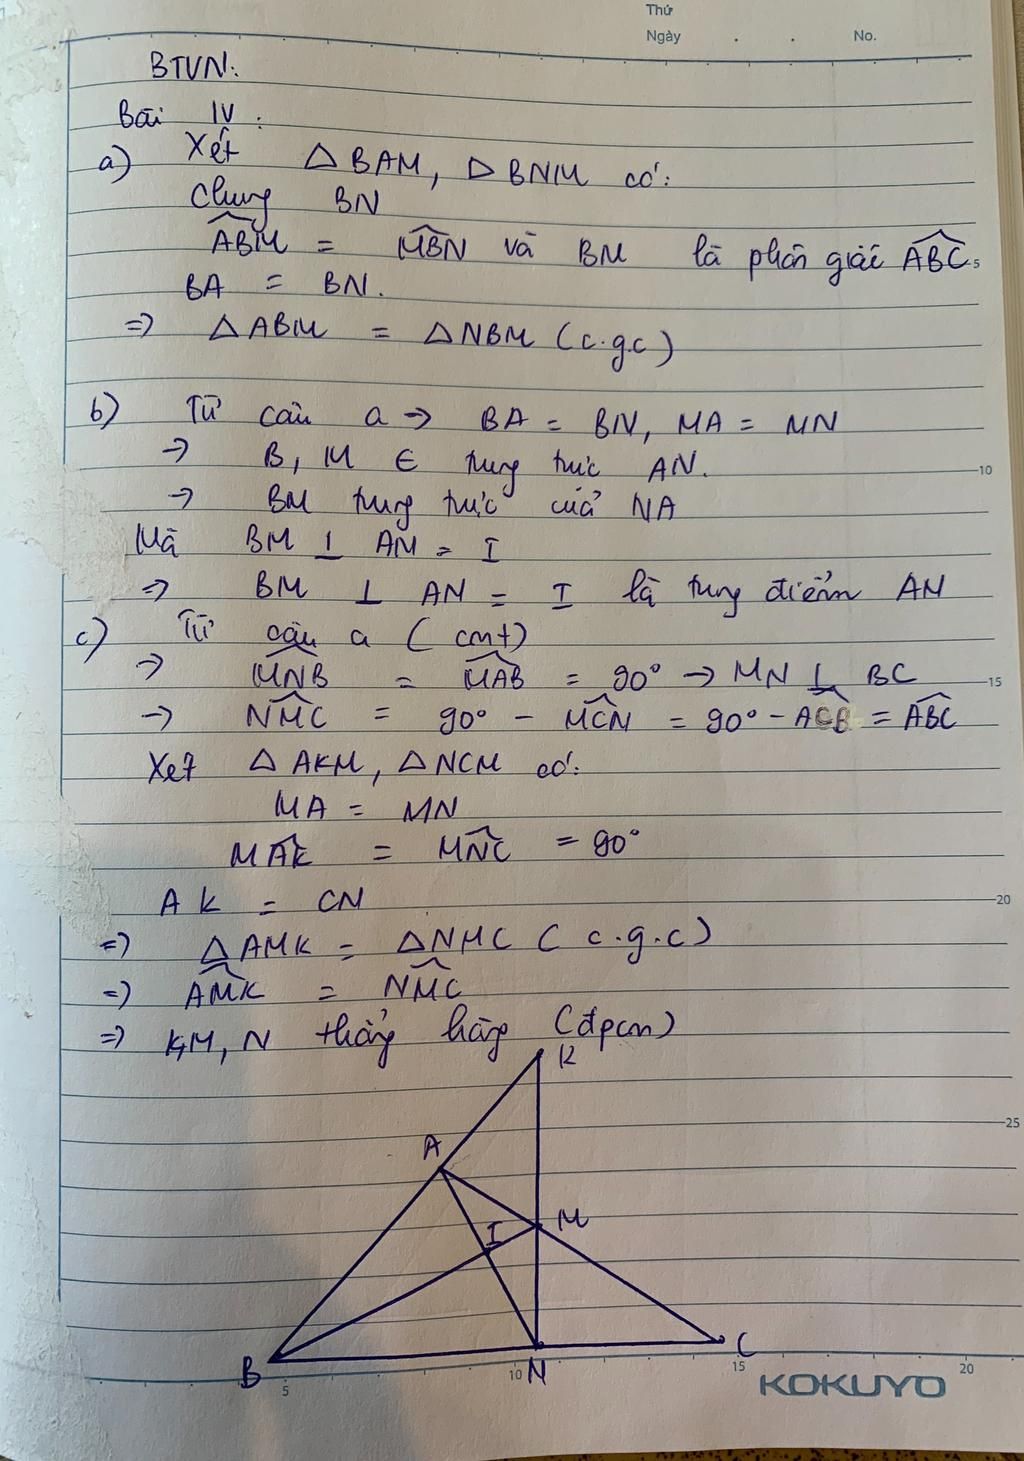 Thứ
Ngày . . No.
BTVN:
Bài IV:
a) Xét △BAM, △BNM có:
Chung BN
ABM = MBN và BM là phân giác ABC
BA = BN.
=> △ABM = △NBM (c.g.c)
b) Từ câu a → BA = BN, MA = MN
→ B, M ∈ trung trực AN.
→ BM trung trực của NA
Mà BM ⊥ AM = I
=> BM ⊥ AN = I là trung điểm AN
c) Từ câu a (cmt)
→ MNB = MAB = 90° → MN ⊥ BC
→ NMC = 90° - MCN = 90° - ACB = ABC
Xét △AKM, △NCM có:
MA = MN
MAK = MNC = 90°
AK = CN
=> △AMK = △NMC (c.g.c)
=> AMK = NMC
=> K,M,N thẳng hàng (đpcm)
K
A
M
I
B
N
C
5
10
15
20
25
5
10
15
20
KOKUYO